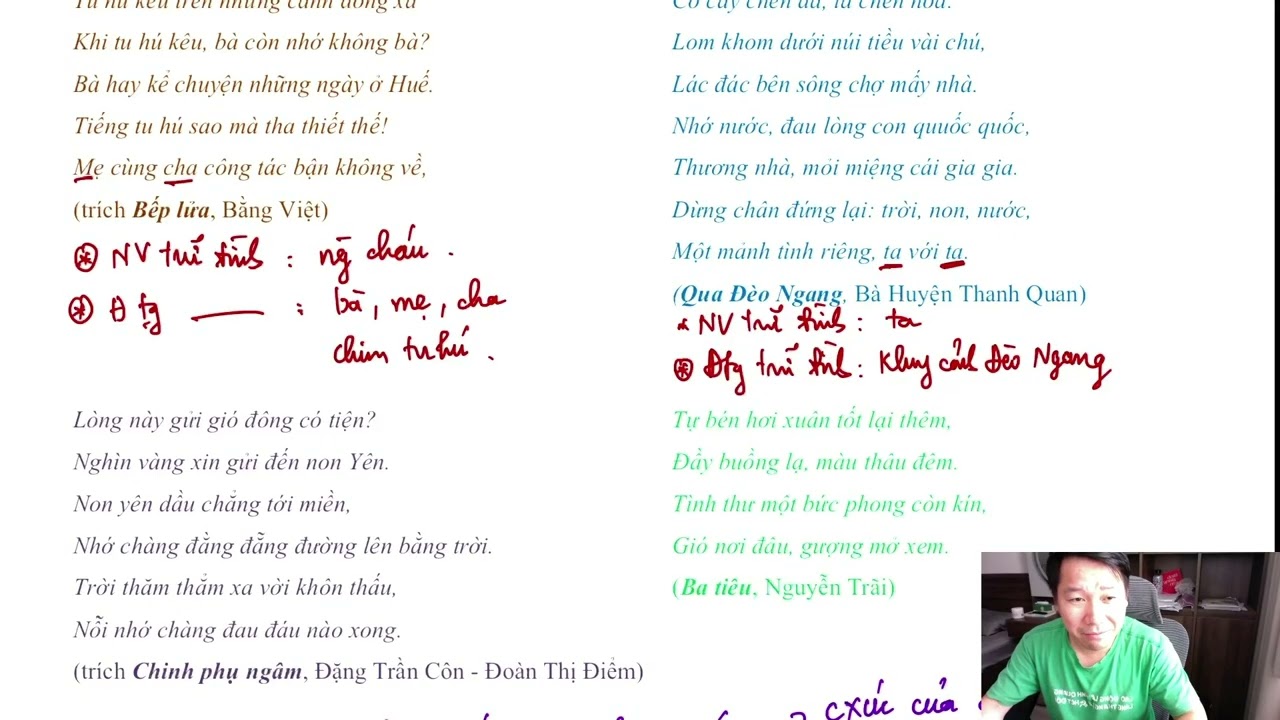 Tu hú kêu trên những cánh đồng xa
Khi tu hú kêu, bà còn nhớ không bà?
Bà hay kể chuyện những ngày ở Huế.
Tiếng tu hú sao mà tha thiết thế!
Mẹ cùng cha công tác bận không về,
(trích Bếp lửa, Bằng Việt)
⊛ NV trữ tình : ng cháu .
⊛ Đ tg —— : bà, mẹ, cha
chim tu hú .
Cỏ cây chen đá, lá chen hoa.
Lom khom dưới núi tiều vài chú,
Lác đác bên sông chợ mấy nhà.
Nhớ nước, đau lòng con quuốc quốc,
Thương nhà, mỏi miệng cái gia gia.
Dừng chân đứng lại: trời, non, nước,
Một mảnh tình riêng, ta với ta.
(Qua Đèo Ngang, Bà Huyện Thanh Quan)
* NV trữ tình : ta
⊛ Đtg trữ tình : Khung cảnh Đèo Ngang
Lòng này gửi gió đông có tiện?
Nghìn vàng xin gửi đến non Yên.
Non yên dầu chẳng tới miền,
Nhớ chàng đằng đẵng đường lên bằng trời.
Trời thăm thẳm xa vời khôn thấu,
Nỗi nhớ chàng đau đáu nào xong.
(trích Chinh phụ ngâm, Đặng Trần Côn - Đoàn Thị Điểm)
Tự bén hơi xuân tốt lại thêm,
Đầy buồng lạ, màu thâu đêm.
Tình thư một bức phong còn kín,
Gió nơi đâu, gượng mở xem.
(Ba tiêu, Nguyễn Trãi)
cxúc của